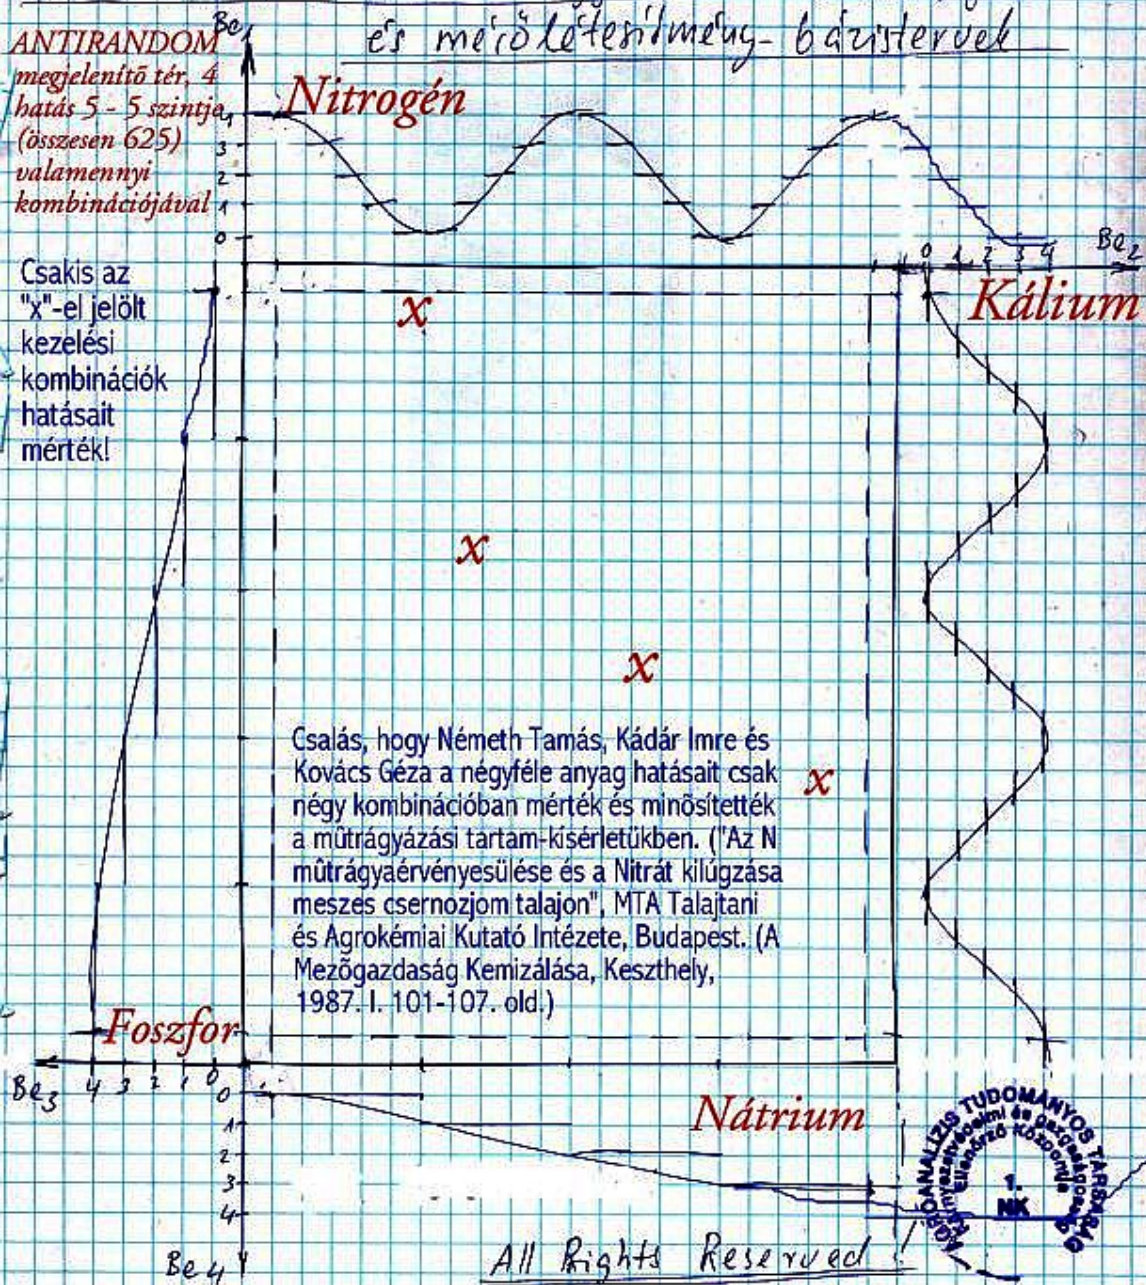 és mérőlétesítmény-bázistervek
Be1
ANTIRANDOM
megjelenítõ tér, 4
hatás 5 - 5 szintje
(összesen 625)
valamennyi
kombinációjával
Nitrogén
4
3
2
1
0
Be2
0 1 2 3 4
Kálium
Csakis az
"x"-el jelölt
kezelési
kombinációk
hatásait
mérték!
x
x
x
x
Csalás, hogy Németh Tamás, Kádár Imre és
Kovács Géza a négyféle anyag hatásait csak
négy kombinációban mérték és minõsítették
a mûtrágyázási tartam-kísérletükben. ("Az N
mûtrágyaérvényesülése és a Nitrát kilúgzása
meszes csernozjom talajon", MTA Talajtani
és Agrokémiai Kutató Intézete, Budapest. (A
Mezõgazdaság Kemizálása, Keszthely,
1987. I. 101-107. old.)
Foszfor
Be3
4 3 2 1 0
0
1
2
3
4
Be4
Nátrium
AGROANALÍZIS TUDOMÁNYOS TÁRSASÁG
Környezetvédelmi és gazdaságossági
Ellenőrző Központja
1.
NK
All Rights Reserved!